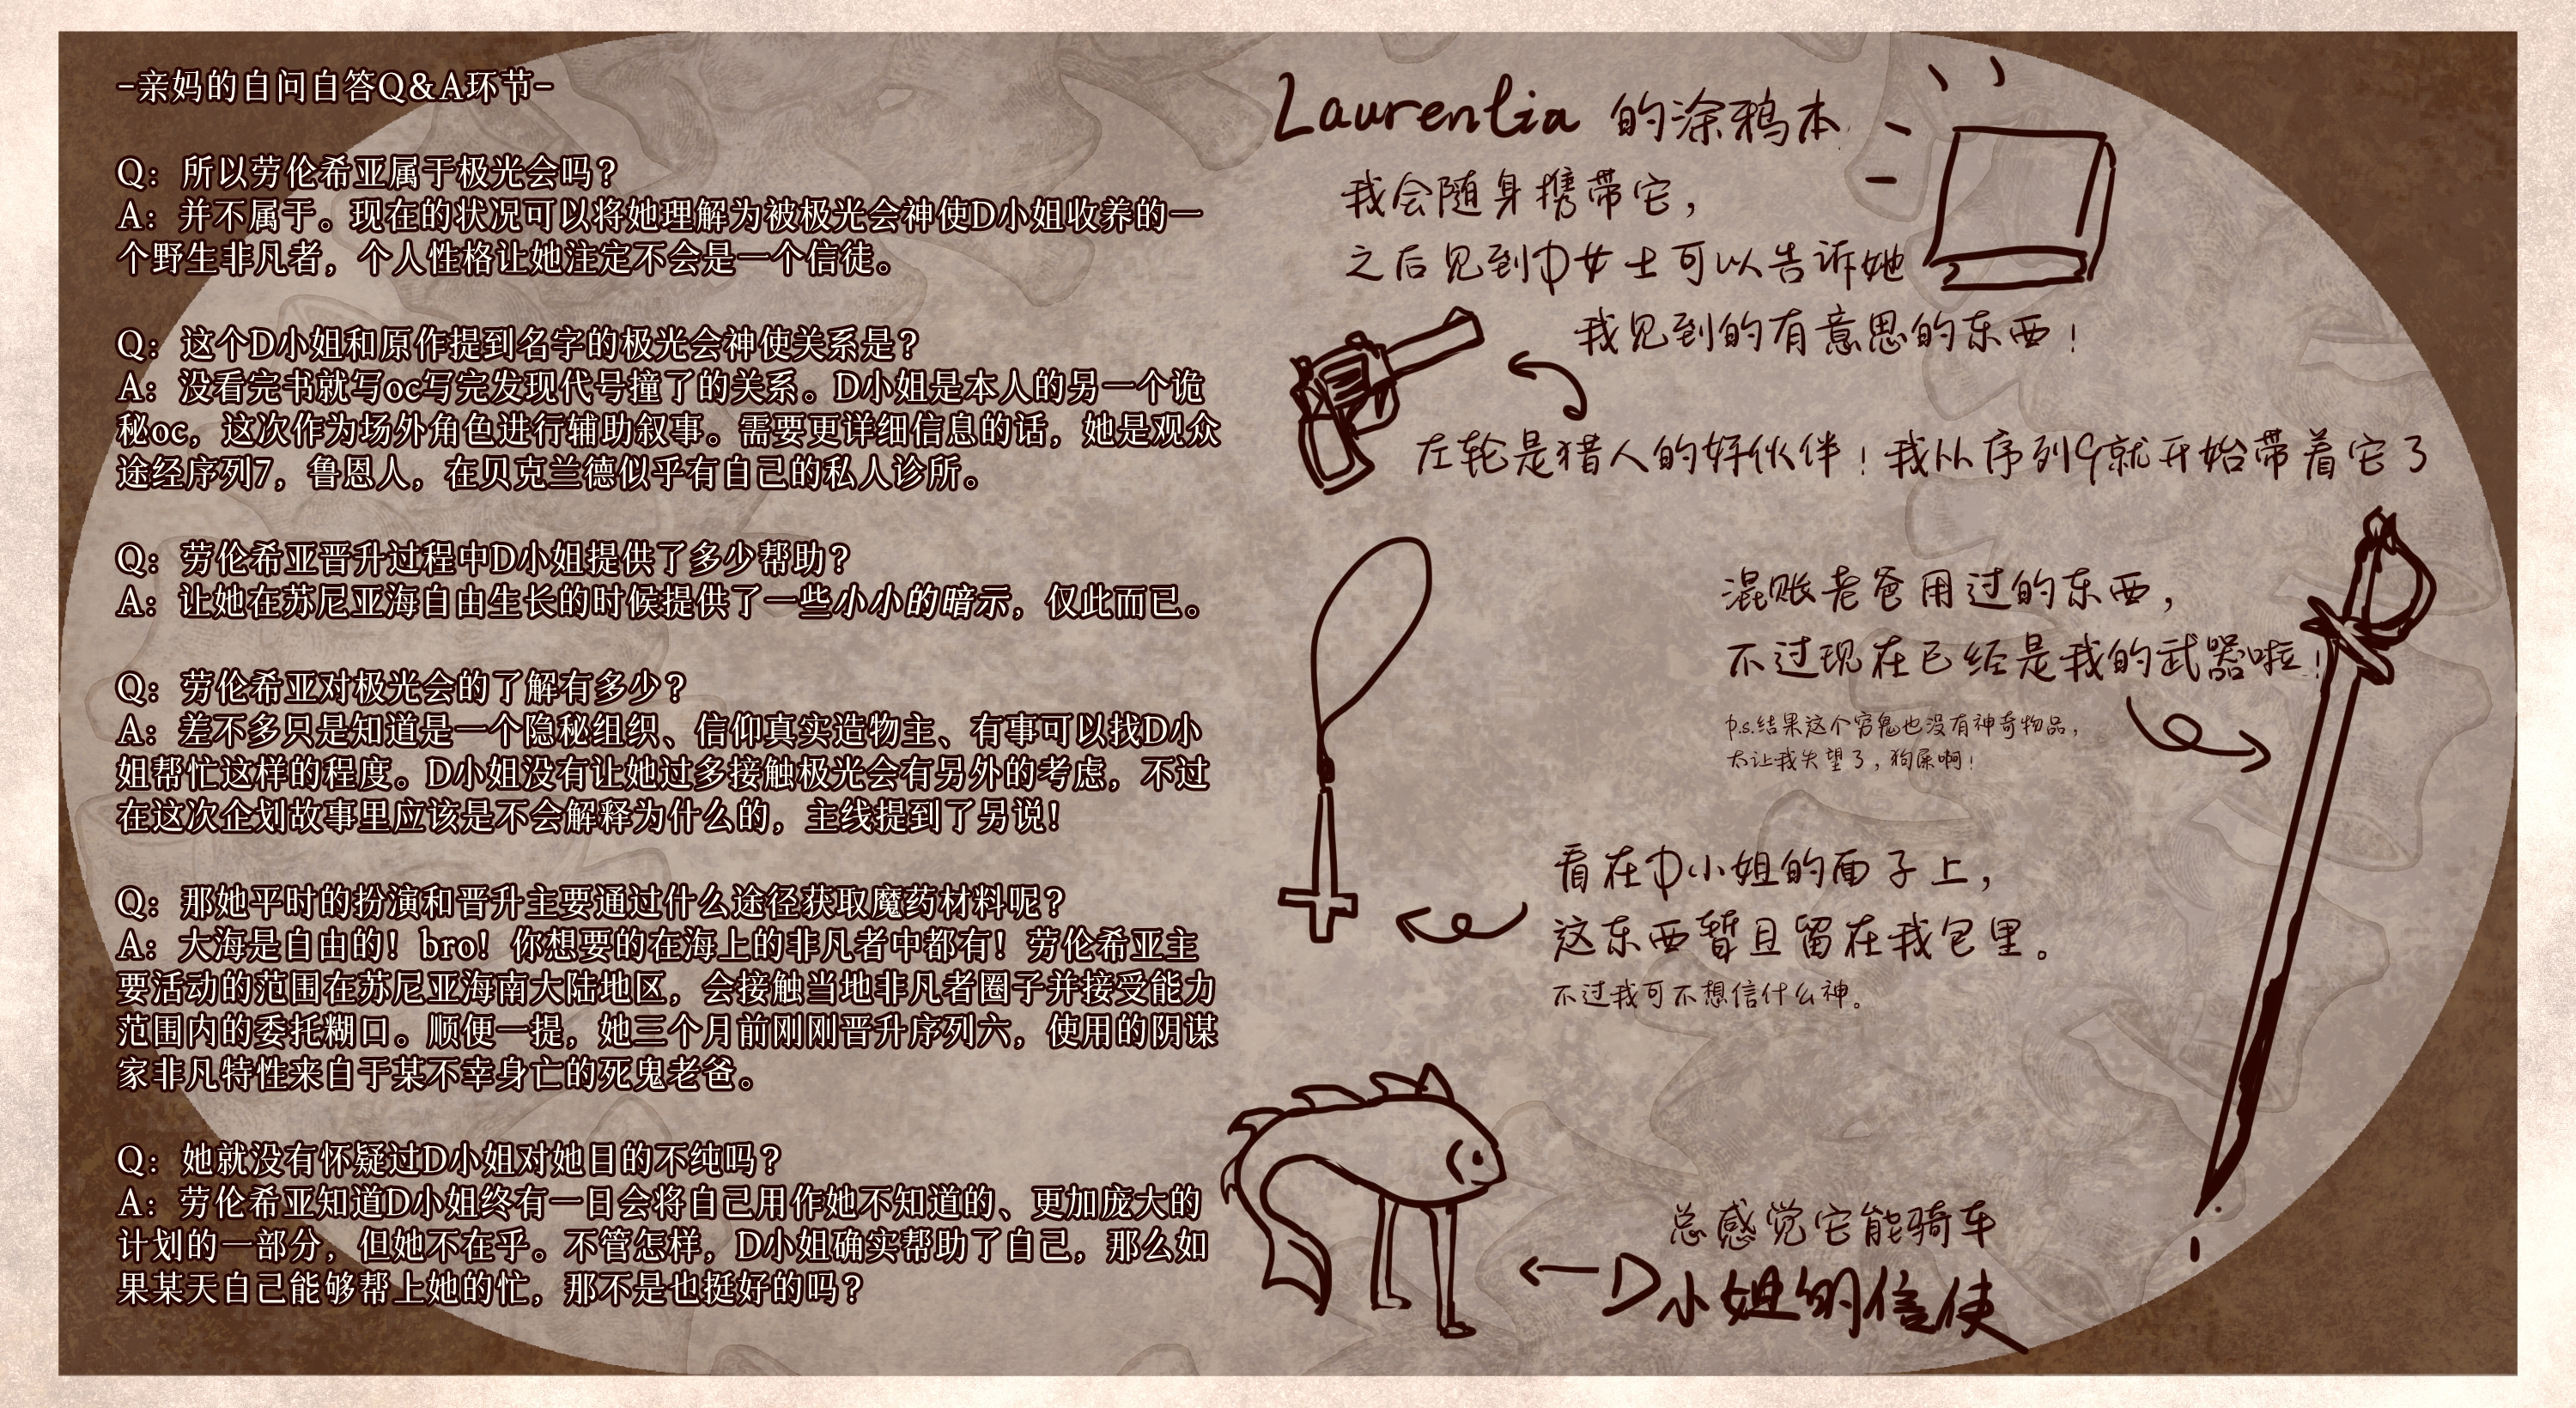 -亲妈的自问自答Q&A环节-
Q：所以劳伦希亚属于极光会吗？
A：并不属于。现在的状况可以将她理解为被极光会神使D小姐收养的一
个野生非凡者，个人性格让她注定不会是一个信徒。
Q：这个D小姐和原作提到名字的极光会神使关系是？
A：没看完书就写oc写完发现代号撞了的关系。D小姐是本人的另一个诡
秘oc，这次作为场外角色进行辅助叙事。需要更详细信息的话，她是观众
途经序列7，鲁恩人，在贝克兰德似乎有自己的私人诊所。
Q：劳伦希亚晋升过程中D小姐提供了多少帮助？
A：让她在苏尼亚海自由生长的时候提供了一些小小的暗示，仅此而已。
Q：劳伦希亚对极光会的了解有多少？
A：差不多只是知道是一个隐秘组织、信仰真实造物主、有事可以找D小
姐帮忙这样的程度。D小姐没有让她过多接触极光会有另外的考虑，不过
在这次企划故事里应该是不会解释为什么的，主线提到了另说！
Q：那她平时的扮演和晋升主要通过什么途径获取魔药材料呢？
A：大海是自由的！bro！你想要的在海上的非凡者中都有！劳伦希亚主
要活动的范围在苏尼亚海南大陆地区，会接触当地非凡者圈子并接受能力
范围内的委托糊口。顺便一提，她三个月前刚刚晋升序列六，使用的阴谋
家非凡特性来自于某不幸身亡的死鬼老爸。
Q：她就没有怀疑过D小姐对她目的不纯吗？
A：劳伦希亚知道D小姐终有一日会将自己用作她不知道的、更加庞大的
计划的一部分，但她不在乎。不管怎样，D小姐确实帮助了自己，那么如
果某天自己能够帮上她的忙，那不是也挺好的吗？
Laurentia 的涂鸦本
我会随身携带它，
之后见到D女士可以告诉她
我见到的有意思的东西！
左轮是猎人的好伙伴！我从序列9就开始带着它了
混账老爸用过的东西，
不过现在已经是我的武器啦！
p.s.结果这个穷鬼也没有神奇物品，
太让我失望了，狗屎啊！
看在D小姐的面子上，
这东西暂且留在我包里。
不过我可不想信什么神。
总感觉它能骑车
D小姐的信使